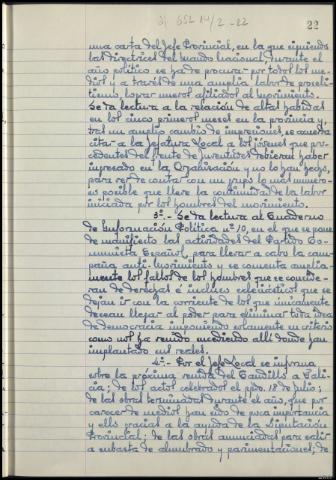 22
una carta del Jefe Provincial, en la que siguiendo
las directrices del mando Nacional durante el
año político se ha de procurar por todos los me-
dios y a través de una amplia labor de proseli-
tismo, lograr nuevos afiliados al movimiento.
Se da lectura a la relación de altas habidas
en los cinco primeros meses en la provincia y
tras un amplio cambio de impresiones se acuerda
citar a la Jefatura Local a los jóvenes que pro-
cedentes del Frente de Juventudes debieran haber
ingresado en la Organización y no lo han hecho,
para ver de contar con un grupo lo más numero-
so posible que lleve la continuidad de la labor
iniciada por los hombres del movimiento.
3º.- Se da lectura al Cuaderno
de Información Política nº 10, en el que se pone
de manifiesto las actividades del Partido Co-
munista Español, para llevar a cabo la cam-
paña anti-movimiento y se comenta amplia-
mente los fallos de los hombres que se conside-
ran de derechas e incluso eclesiásticos que se
dejan ir con la corriente de los que únicamente
desean llegar al poder para eliminar toda idea
de democracia imponiendo solamente su criterio
como nos ha venido sucediendo allí donde han
implantado sus reales.
4º.- Por el Jefe Local se informa
sobre la próxima venida del Caudillo a Gali-
cia; de los actos celebrados el ppdo. 18 de julio;
de las obras terminadas durante el año, que por
carecer de medios han sido de poca importancia
y ello gracias a la ayuda de la Diputación
Provincial; de las obras anunciadas para salir
a subasta de alumbrado y pavimentaciones; de